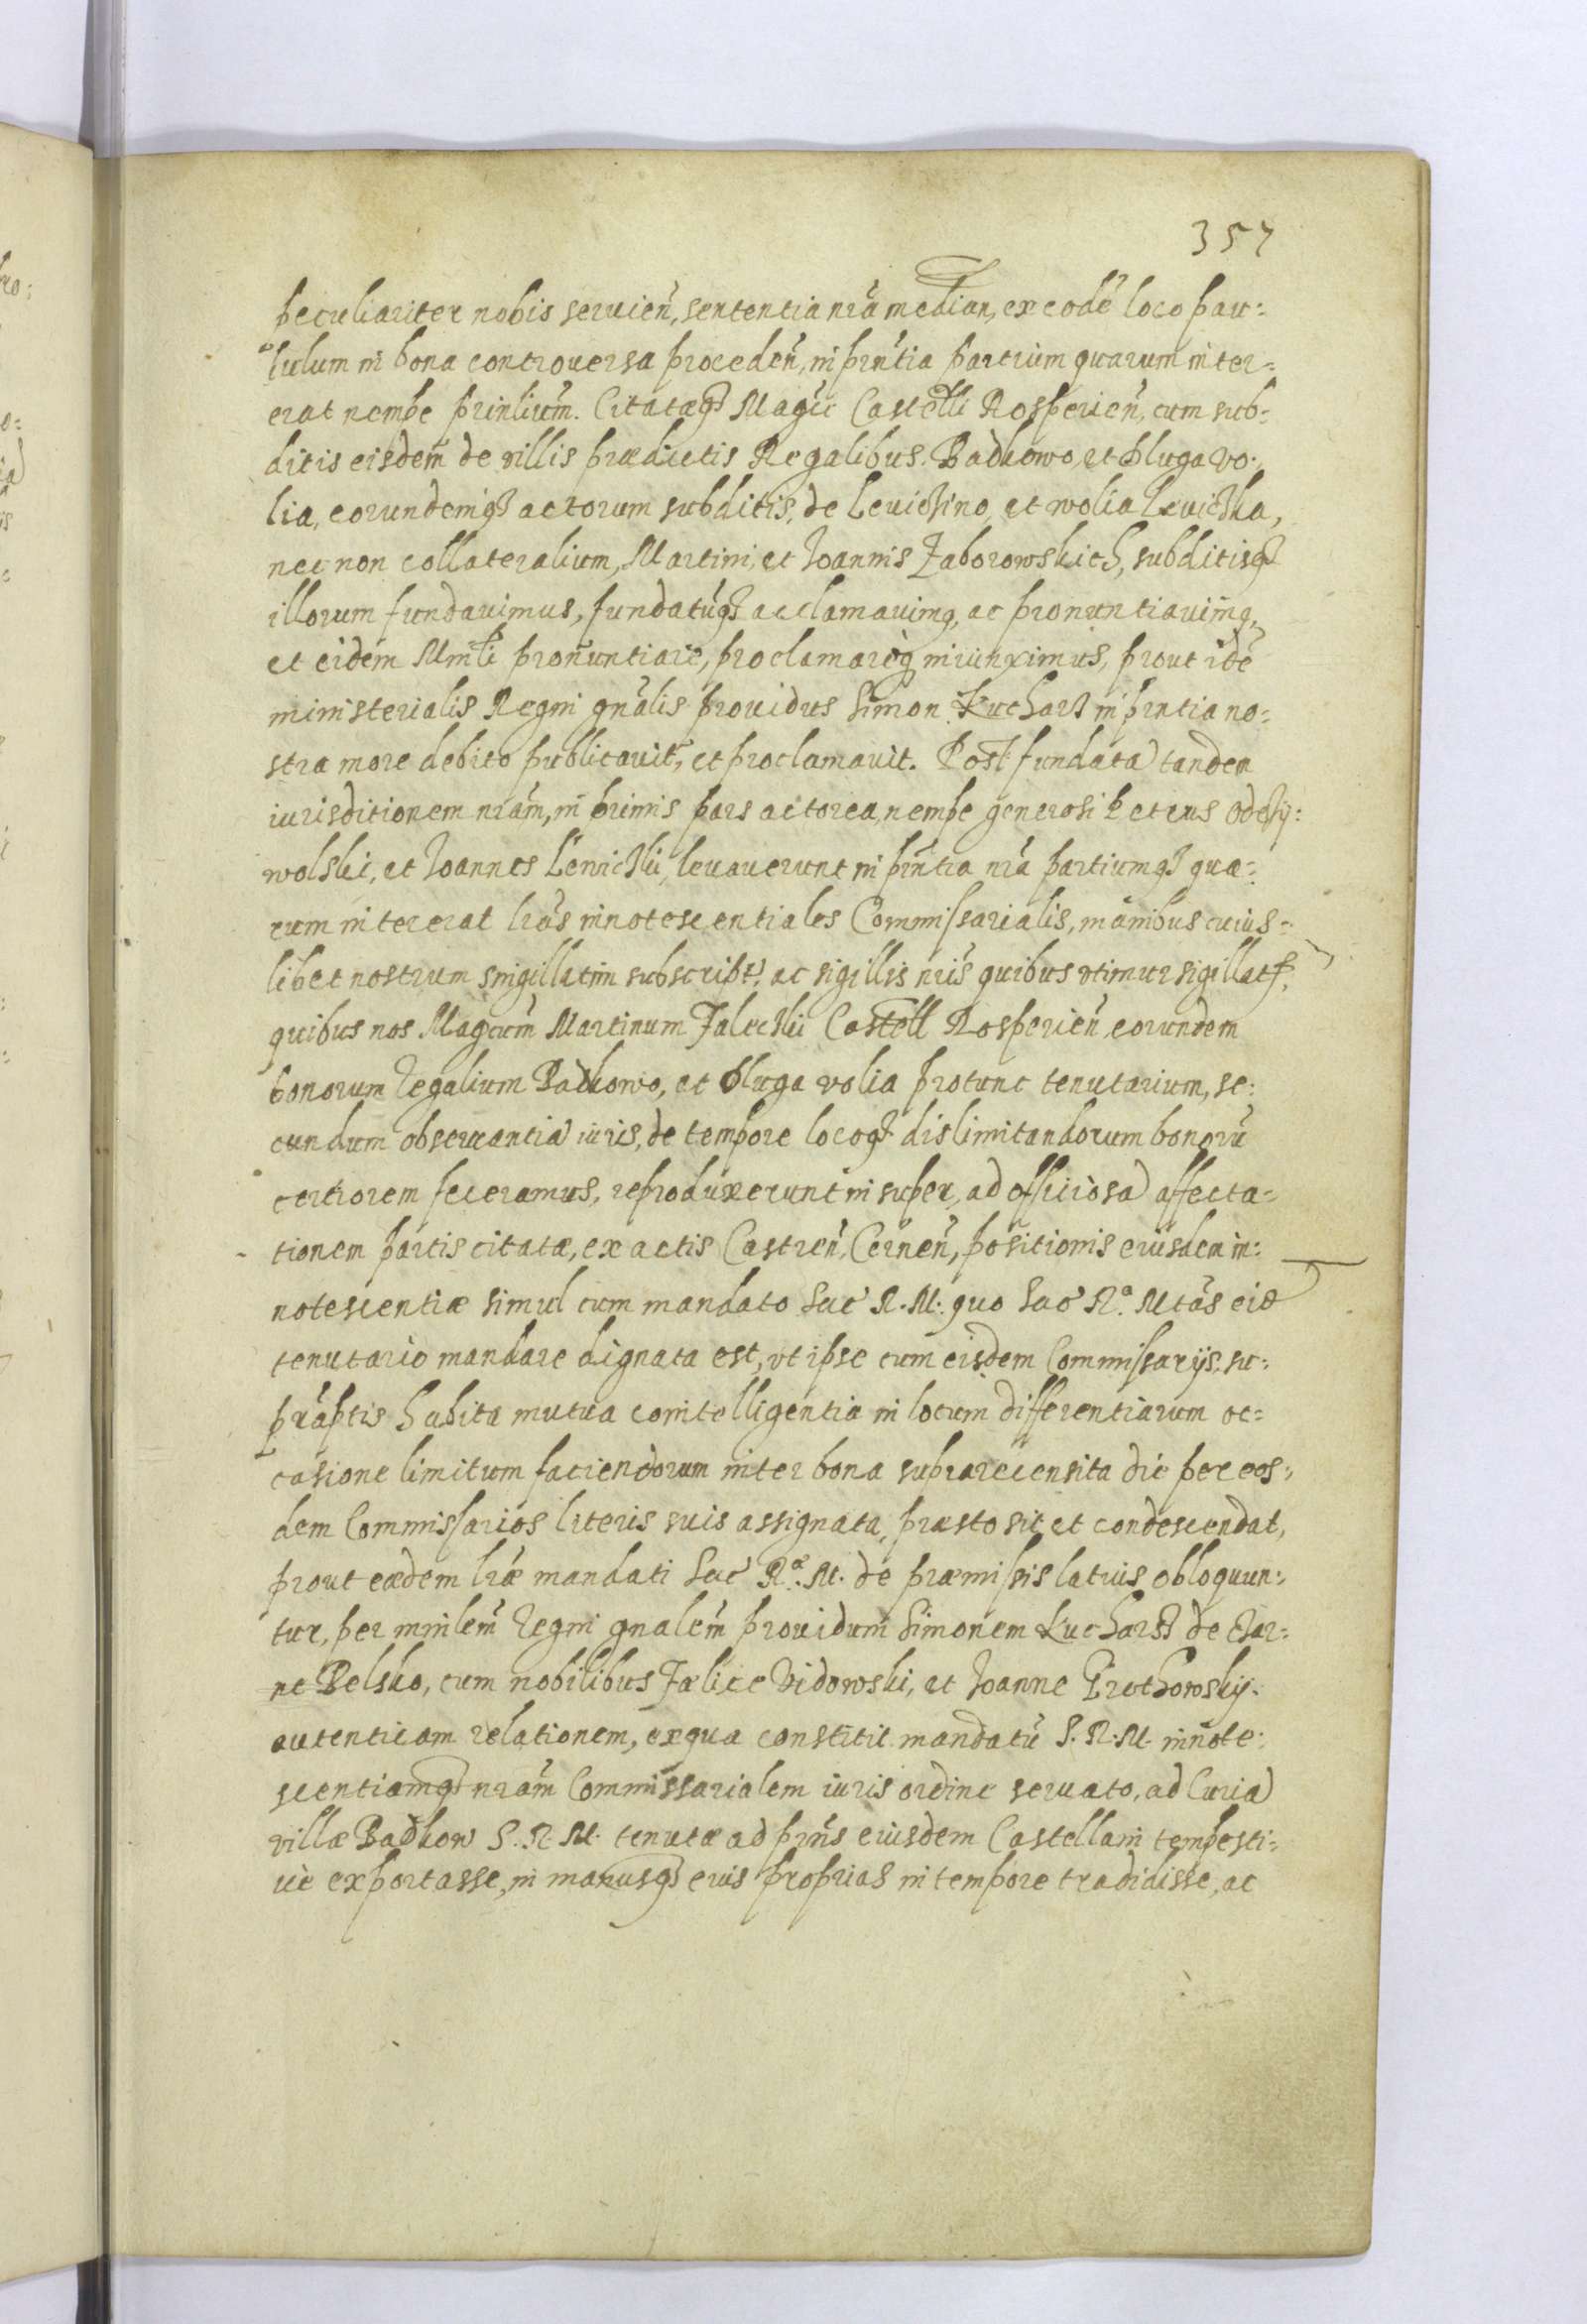 357
peculiariter nobis seruień, sententia nrã median, ex eodẽ loco pau:
lulum in bona controuersa proceden̄, in prn̄tia partium quarum inter=
erat nempe prinlium̃. Citatæq; Magci Castelli Rosperien̄, cum sub=
ditis eisdem de villis prædictis Regalibus Badkowo, et Dluga vo:
lia, eorundemq; actorum subditis, de Levichino, et wolia Levichka,
nec non collateralium, Martini, et Joannis Zaborowskich, subditisq;
illorum fundauimus, fundatũq; acclamauimq, ac pronuntiauimq,
et eidem Mmli pronuntiare, proclamareq iniunximus, prout idẽ
ministerialis Regni gnalis prouidus Simon Kucharz in prntia no:
stra more debito publicauit, et proclamauit. Post fundatã tandem
iurisditionem nram̃, in primis pars actorea, nempe generosi Petrus Odrziy:
wolski, et Joannes Lewicki, leuauerunt in prn̄tia nrã partiumq; qua:
rum intererat lrãs innotescentiales Commissarialis, manibus cuius=
libet nostrum singillatim subscript. ac sigillis nris quibus vtimur sigillat,
quibus nos Magcum̃ Martinum Falecki Castell Rosperień eorundem
bonorum Regalium Badkowo, et Dluga volia protunc tenutarium, se:
cundum obseruantiã iuris, de tempore locoq; dislimitandorum bonorũ
certiorem feceramus, reproduxerunt in super, ad officiosã affecta=
tionem partis citatæ, ex actis Castren̄, Cernen̄, positionis eiusdem in:
notescentiæ simul cum mandato Sac R. M: quo Sac Rª Mtãs eid
tenutario mandare dignata est, vt ipse cum eisdem Commissarijs su:
praptis habita mutua cointelligentia in locum differentiarum oc=
casione limitum faciendorum inter bona suprarecensita die per eos:
dem Commissarios literis suis assignata, præsto sit et condescendat,
prout eædem lræ mandati Sac Rª. M. de præmissis latius obloquun:
tur, per minlem̃ Regni gnalem̃ prouidum Simonem Kucharz de Czar:
ne Belsko, cum nobilibus Fælice Vidowski, et Joanne Grothowsky:
autenticam relationem, ex qua constitit mandatũ S. R. M. innote:
scentiamq; nram̃ Commissarialem iuris ordine seruato, ad Curiã
villæ Badkow S. R. M. tenutæ ad prn̄s eiusdem Castellani tempesti:
uè exportasse, in manusq; eius proprias in tempore tradidisse, ac